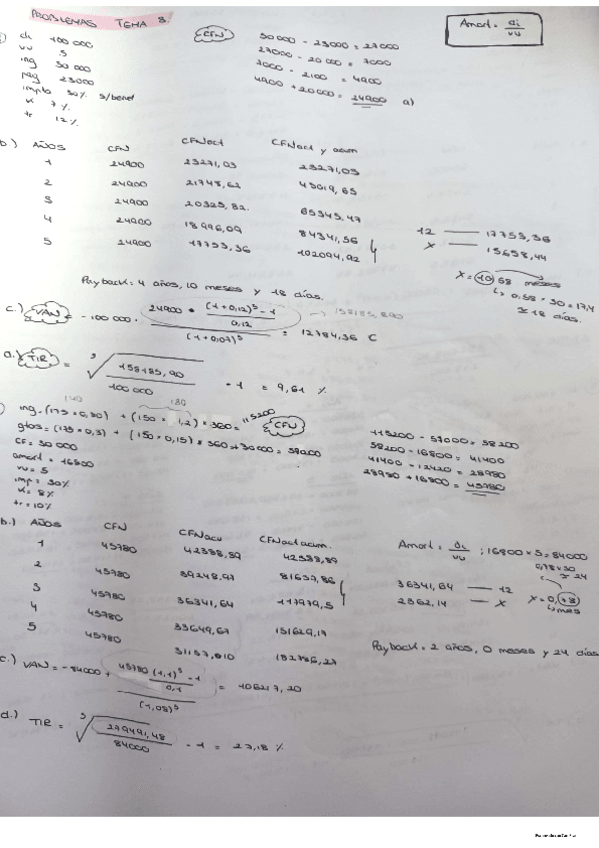 PROBLEMAS TEMA 8.
Amort = di/vu
di 100 000
vu 5
ing 50 000
pag 23000
impto 30% s/benef
K 7%
tr 12%
CFN
50 000 - 23000 = 27000
27000 - 20 000 = 7000
7000 - 2100 = 4900
4900 + 20000 = 24900 a)
b.) AÑOS CFN CFNact CFNact y acum
1 24900 23271,03 23271,03
2 24900 21748,62 45019,65
3 24900 20325,82. 65345,47
4 24900 18996,09 84341,56
5 24900 17753,36 102094,92
12 — 17753,36
x — 15658,44
x = 10,58 meses
↳ 0,58 × 30 = 17,4
≃ 18 días.
Payback = 4 años, 10 meses y 18 días.
c.) VAN = -100 000 + 24900 · (1+0,12)^5 - 1 / 0,12 / (1+0,07)^5 = 12784,36 €
TIR = ^5√158185,90 / 100 000 - 1 = 9,61 %
ing = (175 × 0,80) + (150 × 1,2) × 360 = 115200
140 180
CFN
gtos = (175 × 0,3) + (150 × 0,15) × 360 + 30 000 = 57000
CF = 30 000
amort = 16800
vu = 5
imp = 30%
K = 8%
tr = 10%
115200 - 57000 = 58200
58200 - 16800 = 41400
41400 - 12420 = 28980
28980 + 16800 = 45780
b.) AÑOS CFN CFNacu CFNact acum.
1 45780 42388,89 42388,89
2 45780 39248,97 81637,86
3 45780 36341,64 117979,5
4 45780 33649,67 151629,17
5 45780 31157,10 182786,27
Amort = di/vu ; 16800 × 5 = 84000
0,78 × 30
≃ 24
36341,64 — 12
2362,14 — x
x = 0,78
↳ mes
Payback = 2 años, 0 meses y 24 días
c.) VAN = -84000 + 45780 (1,1)^5 - 1 / 0,1 / (1,08)^5 = 106217,20
d.) TIR = ^5√279491,48 / 84000 - 1 = 27,18 %